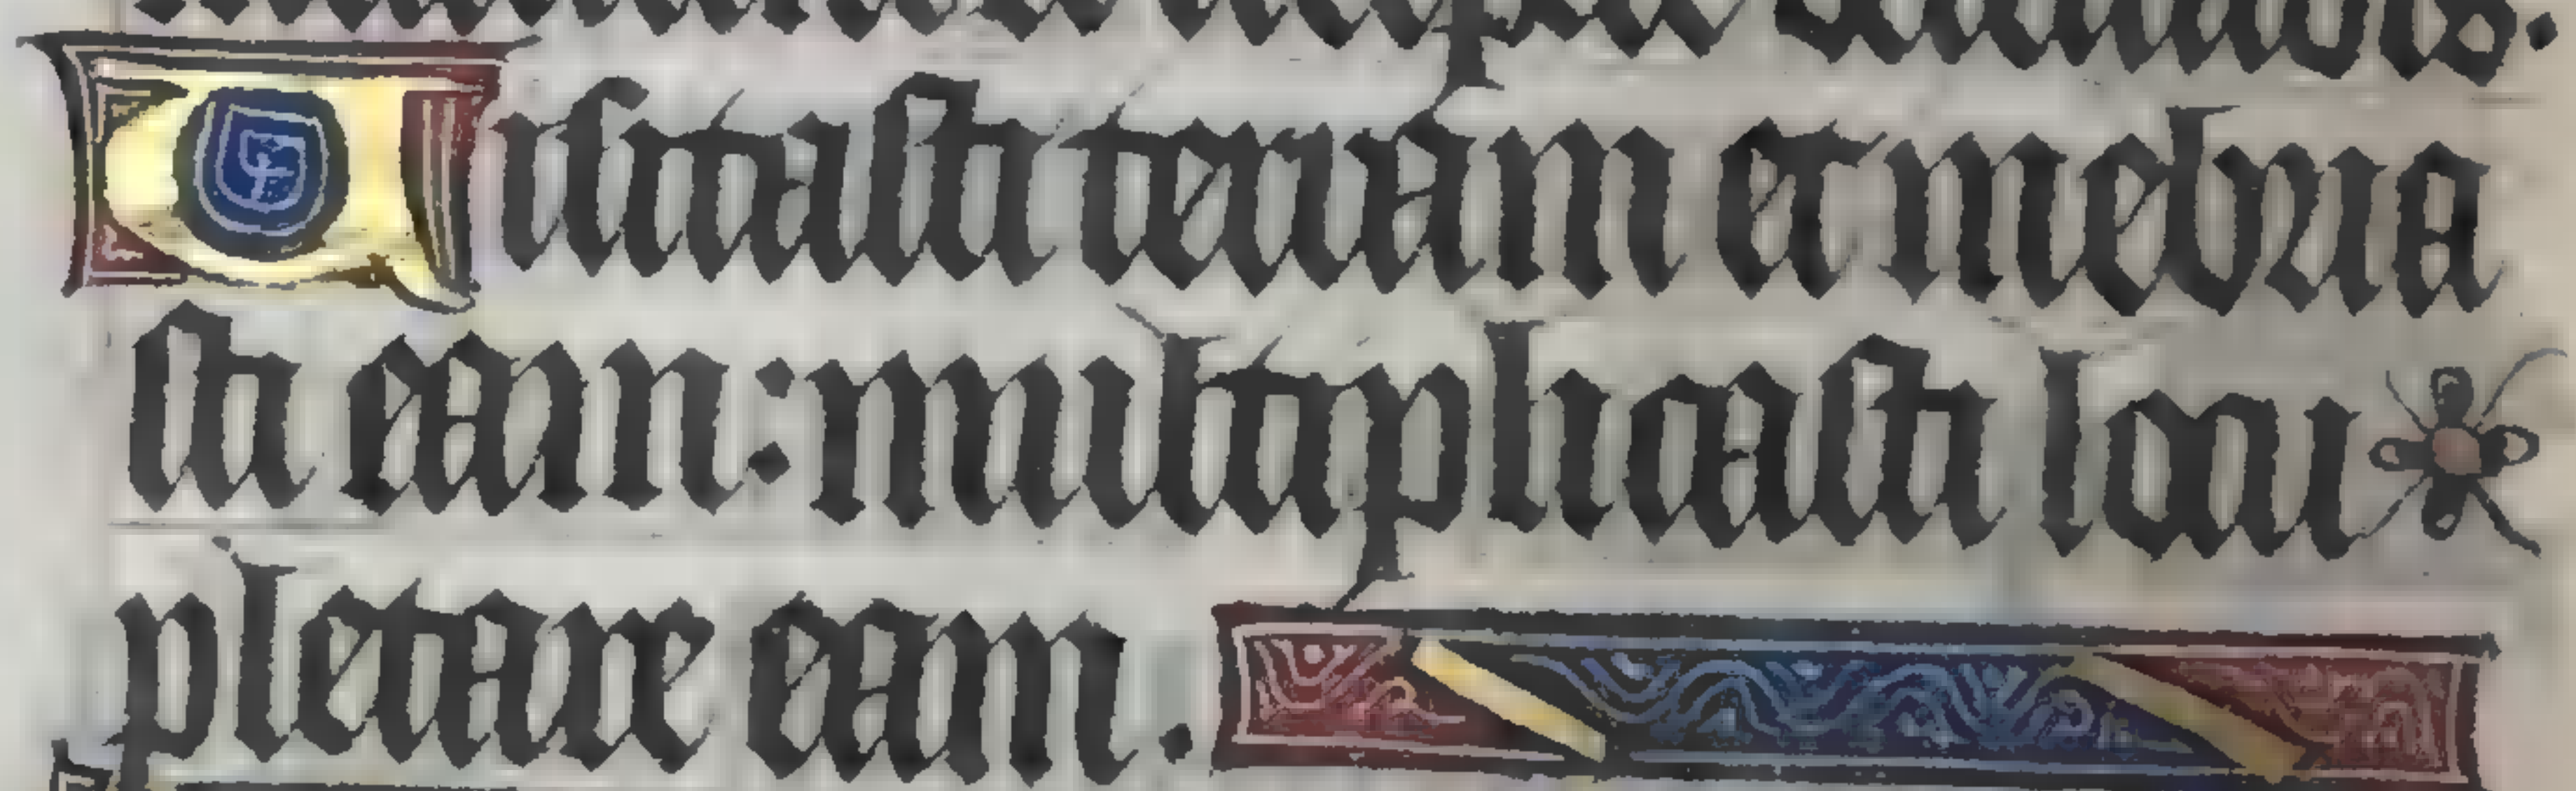 Visitasti terram et inebria
sti eam: multiplicasti locu
pletare eam.